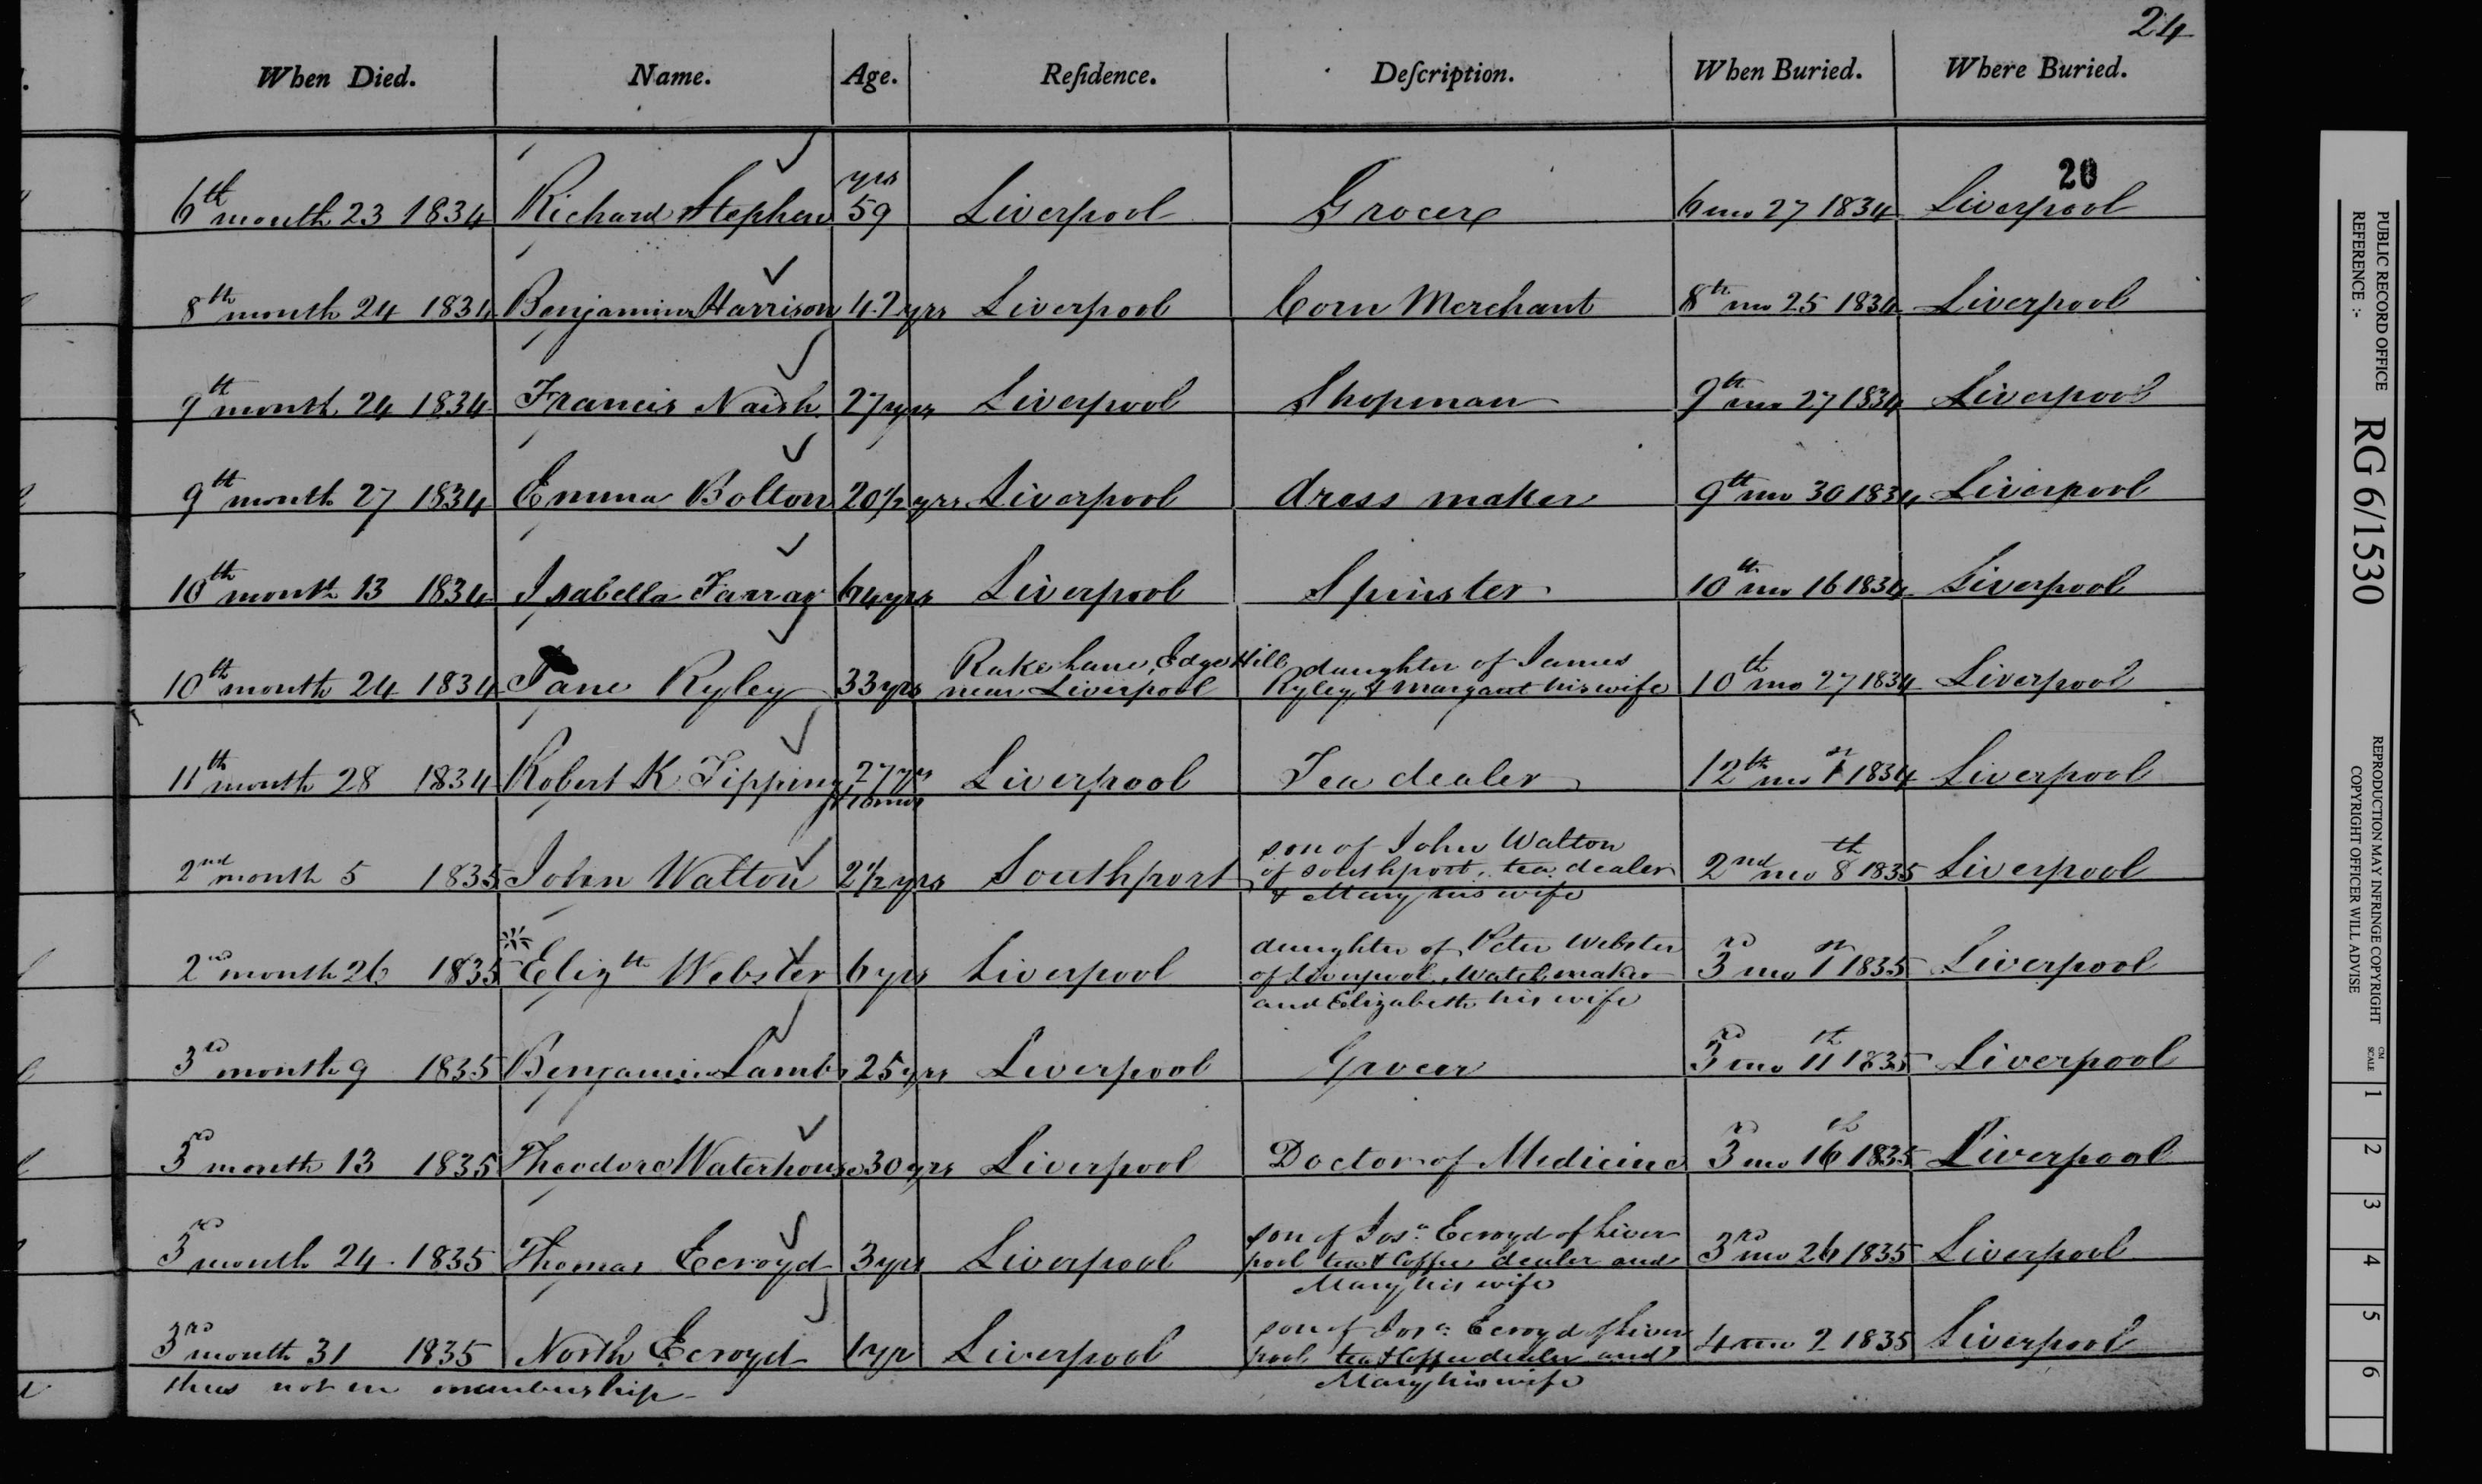 24
When Died. Name. Age. Residence. Description. When Buried. Where Buried.
20
6th month 23 1834 Richard Stephens yrs 59 Liverpool Grocer 6 mo 27 1834 Liverpool
8th month 24 1834 Benjamin Harrison 42 yrs Liverpool Corn Merchant 8th mo 25 1834 Liverpool
9th month 24 1834 Francis Naish 27 yrs Liverpool Shopman 9th mo 27 1834 Liverpool
9th month 27 1834 Emma Bolton 20½ yrs Liverpool dress maker 9th mo 30 1834 Liverpool
10th month 13 1834 Isabella Farray 64 yrs Liverpool Spinster 10th mo 16 1834 Liverpool
Rake Lane, Edge Hill daughter of James
10th month 24 1834 Jane Ryley 33 yrs near Liverpool Ryley & Margaret his wife 10th mo 27 1834 Liverpool
11th month 28 1834 Robert K Tipping 27 yrs Liverpool Tea dealer 12th mo 1st 1834 Liverpool
& 10 mos
son of John Walton
2nd month 5 1835 John Walton 2½ yrs Southport of Southport, tea dealer 2nd mo 8th 1835 Liverpool
& Mary his wife
daughter of Peter Webster
2nd month 26 1835 * Elizth Webster 6 yrs Liverpool of Liverpool, Watchmaker 3rd mo 1st 1835 Liverpool
and Elizabeth his wife
3rd month 9 1835 Benjamin Lamb 25 yrs Liverpool Grocer 3rd mo 11th 1835 Liverpool
3rd month 13 1835 Theodore Waterhouse 30 yrs Liverpool Doctor of Medicine 3rd mo 16th 1835 Liverpool
son of Josa. Ecroyd of Liver
3rd month 24 1835 Thomas Ecroyd 3 yrs Liverpool pool tea & Coffee dealer and 3rd mo 26 1835 Liverpool
Mary his wife
son of Josa: Ecroyd of Liver
3rd month 31 1835 North Ecroyd 1 yr Liverpool pool tea & Coffee dealer and 4 mo 2 1835 Liverpool
thus not in membership Mary his wife
PUBLIC RECORD OFFICE
REFERENCE :-
RG 6/1530
REPRODUCTION MAY INFRINGE COPYRIGHT
COPYRIGHT OFFICER WILL ADVISE
CM
SCALE
1 2 3 4 5 6